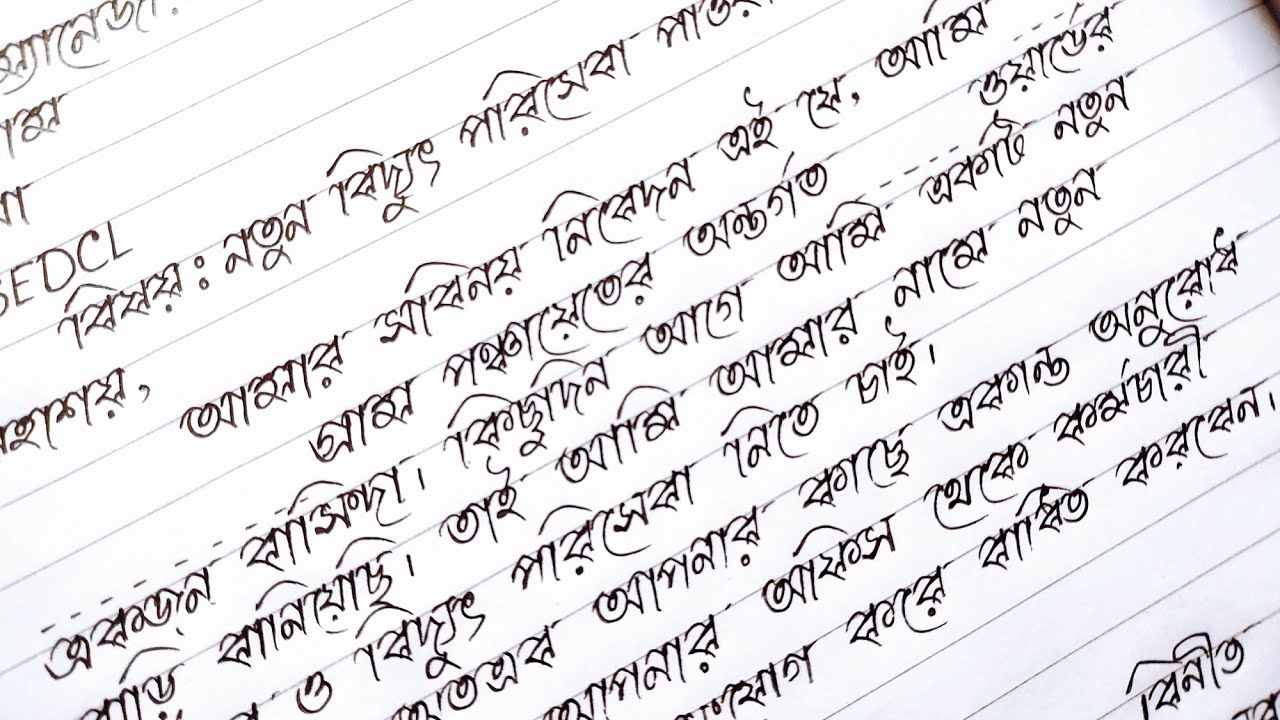 ম্যানেজার
SEDCL
বিষয়ঃ নতুন বিদ্যুৎ পরিসেবা
মহাশয়,
আমার সবিনয় নিবেদন এই যে, আমি
গ্রাম পঞ্চায়েতের অন্তর্গত ----- ওয়ার্ডের
----- একজন বাসিন্দা। কিছুদিন আগে আমি একটি নতুন
বাড়ি বানিয়েছি। তাই আমি আমার নামে নতুন
ও বিদ্যুৎ পরিসেবা নিতে চাই।
অতএব আপনার কাছে একান্ত অনুরোধ
আপনার অফিস থেকে কর্মচারী
করে বাধিত করবেন।
বিনীত